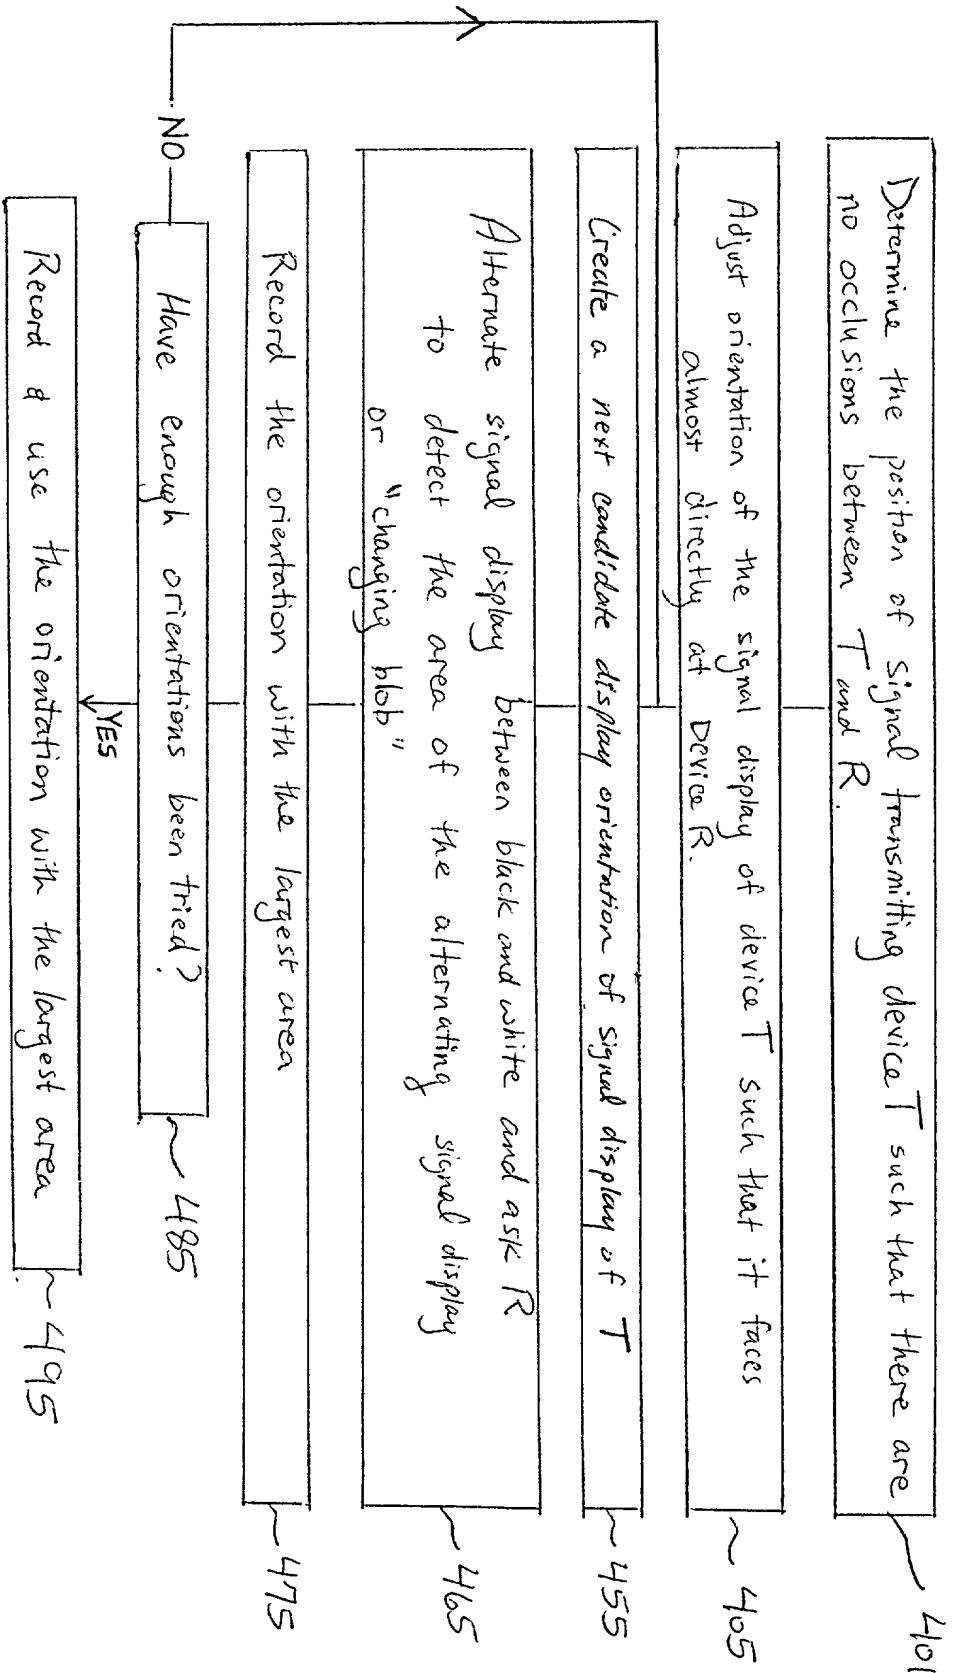 Determine the position of Signal transmitting device T such that there are
no occlusions between T and R.
401
Adjust orientation of the signal display of device T such that it faces
almost directly at Device R.
405
Create a next candidate display orientation of signal display of T
455
Alternate signal display between black and white and ask R
to detect the area of the alternating signal display
or "changing blob"
465
Record the orientation with the largest area
475
Have enough orientations been tried?
485
NO
YES
Record & use the orientation with the largest area
495